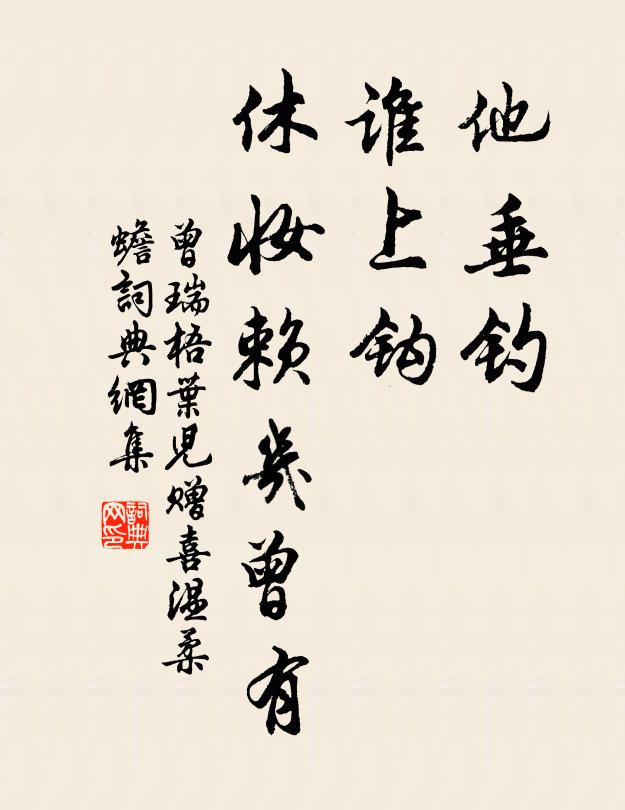 他垂钓
谁上钩
休妆赖几曾有
曾瑞梧葉児赠喜温柔
蟾詞典網集
詞典网印